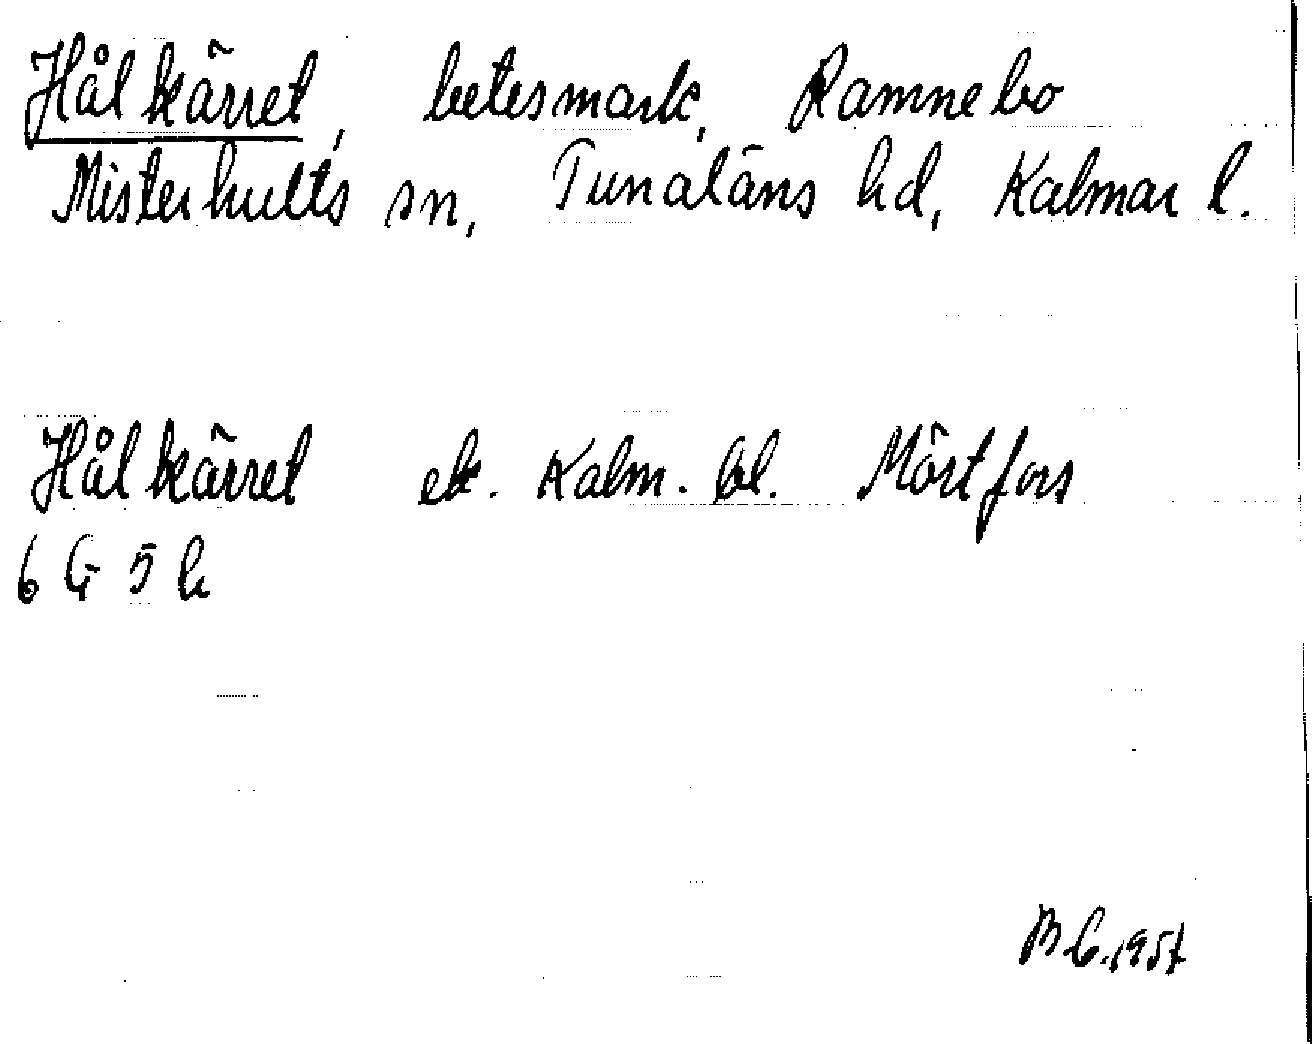 Hålkärret, betesmark, Ramnebo
Misterhults sn, Tunaläns hd, Kalmar l.
Hålkärret ek. Kalm. bl. Mörtfors
6 G 5 h
B C. 1957